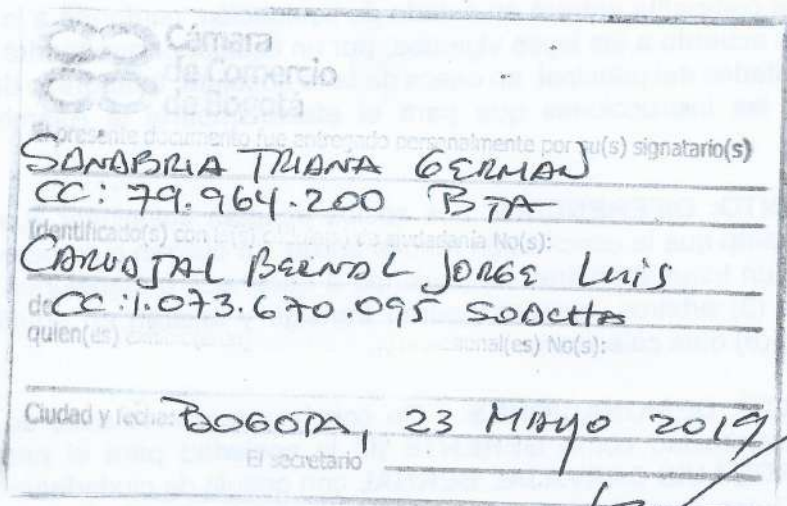 Cámara
de Comercio
de Bogotá
El presente documento fue entregado personalmente por su(s) signatario(s)
SANABRIA TRIANA GERMAN
CC: 79.964.200 BTA
Identificado(s) con la(s) cédula(s) de ciudadanía No(s):
CARVAJAL BERNAL JORGE Luis
de CC: 1.073.670.095 SOACHA
quien(es) onal(es) No(s):
Ciudad y fecha: BOGOTA, 23 MAYO 2019
El secretario